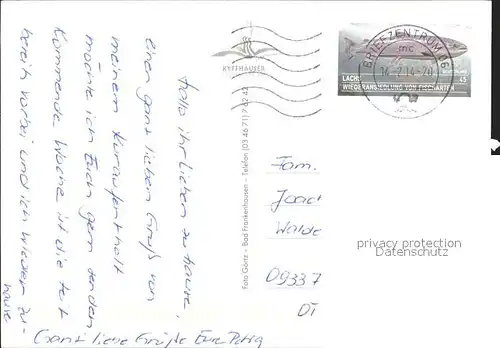 Hallo ihr Lieben zu Hause,
einen ganz lieben Gruß von
meinem Kuraufenthalt
möchte ich Euch gern senden
Kommende Woche ist die Zeit
bereits vorbei und ich wieder zu-
hause
Ganz liebe Grüße Eure Petra
KYFFHÄUSER
Foto Göritz – Bad Frankenhausen – Telefon (03 46 71) 7 62 42
BRIEFZENTRUM 66
mc
14.-2.14-20
LACHS
45
WIEDERANSIEDLUNG VON FISCHARTEN
Fam.
Joach
Walde
09337
OT
privacy protection
Datenschutz